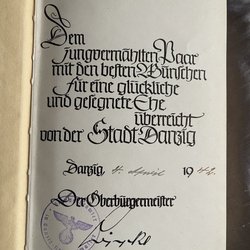 Dem
jungvermählten Paar
mit den besten Wünschen
für eine glückliche
und gesegnete Ehe
überreicht
von der Stadt Danzig
Danzig, 4. April 1942.
Der Oberbürgermeister